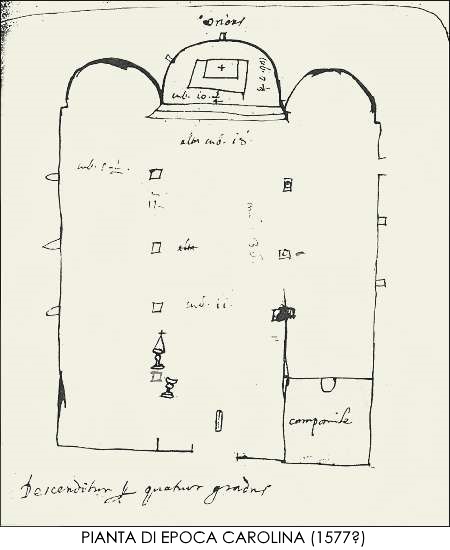 oriens
cub. 10 ½
cub. 7 ½
altus cub. 15
cub. 5 ½
cub. 11
campanile
Descenditur p quatuor gradus
PIANTA DI EPOCA CAROLINA (1577?)